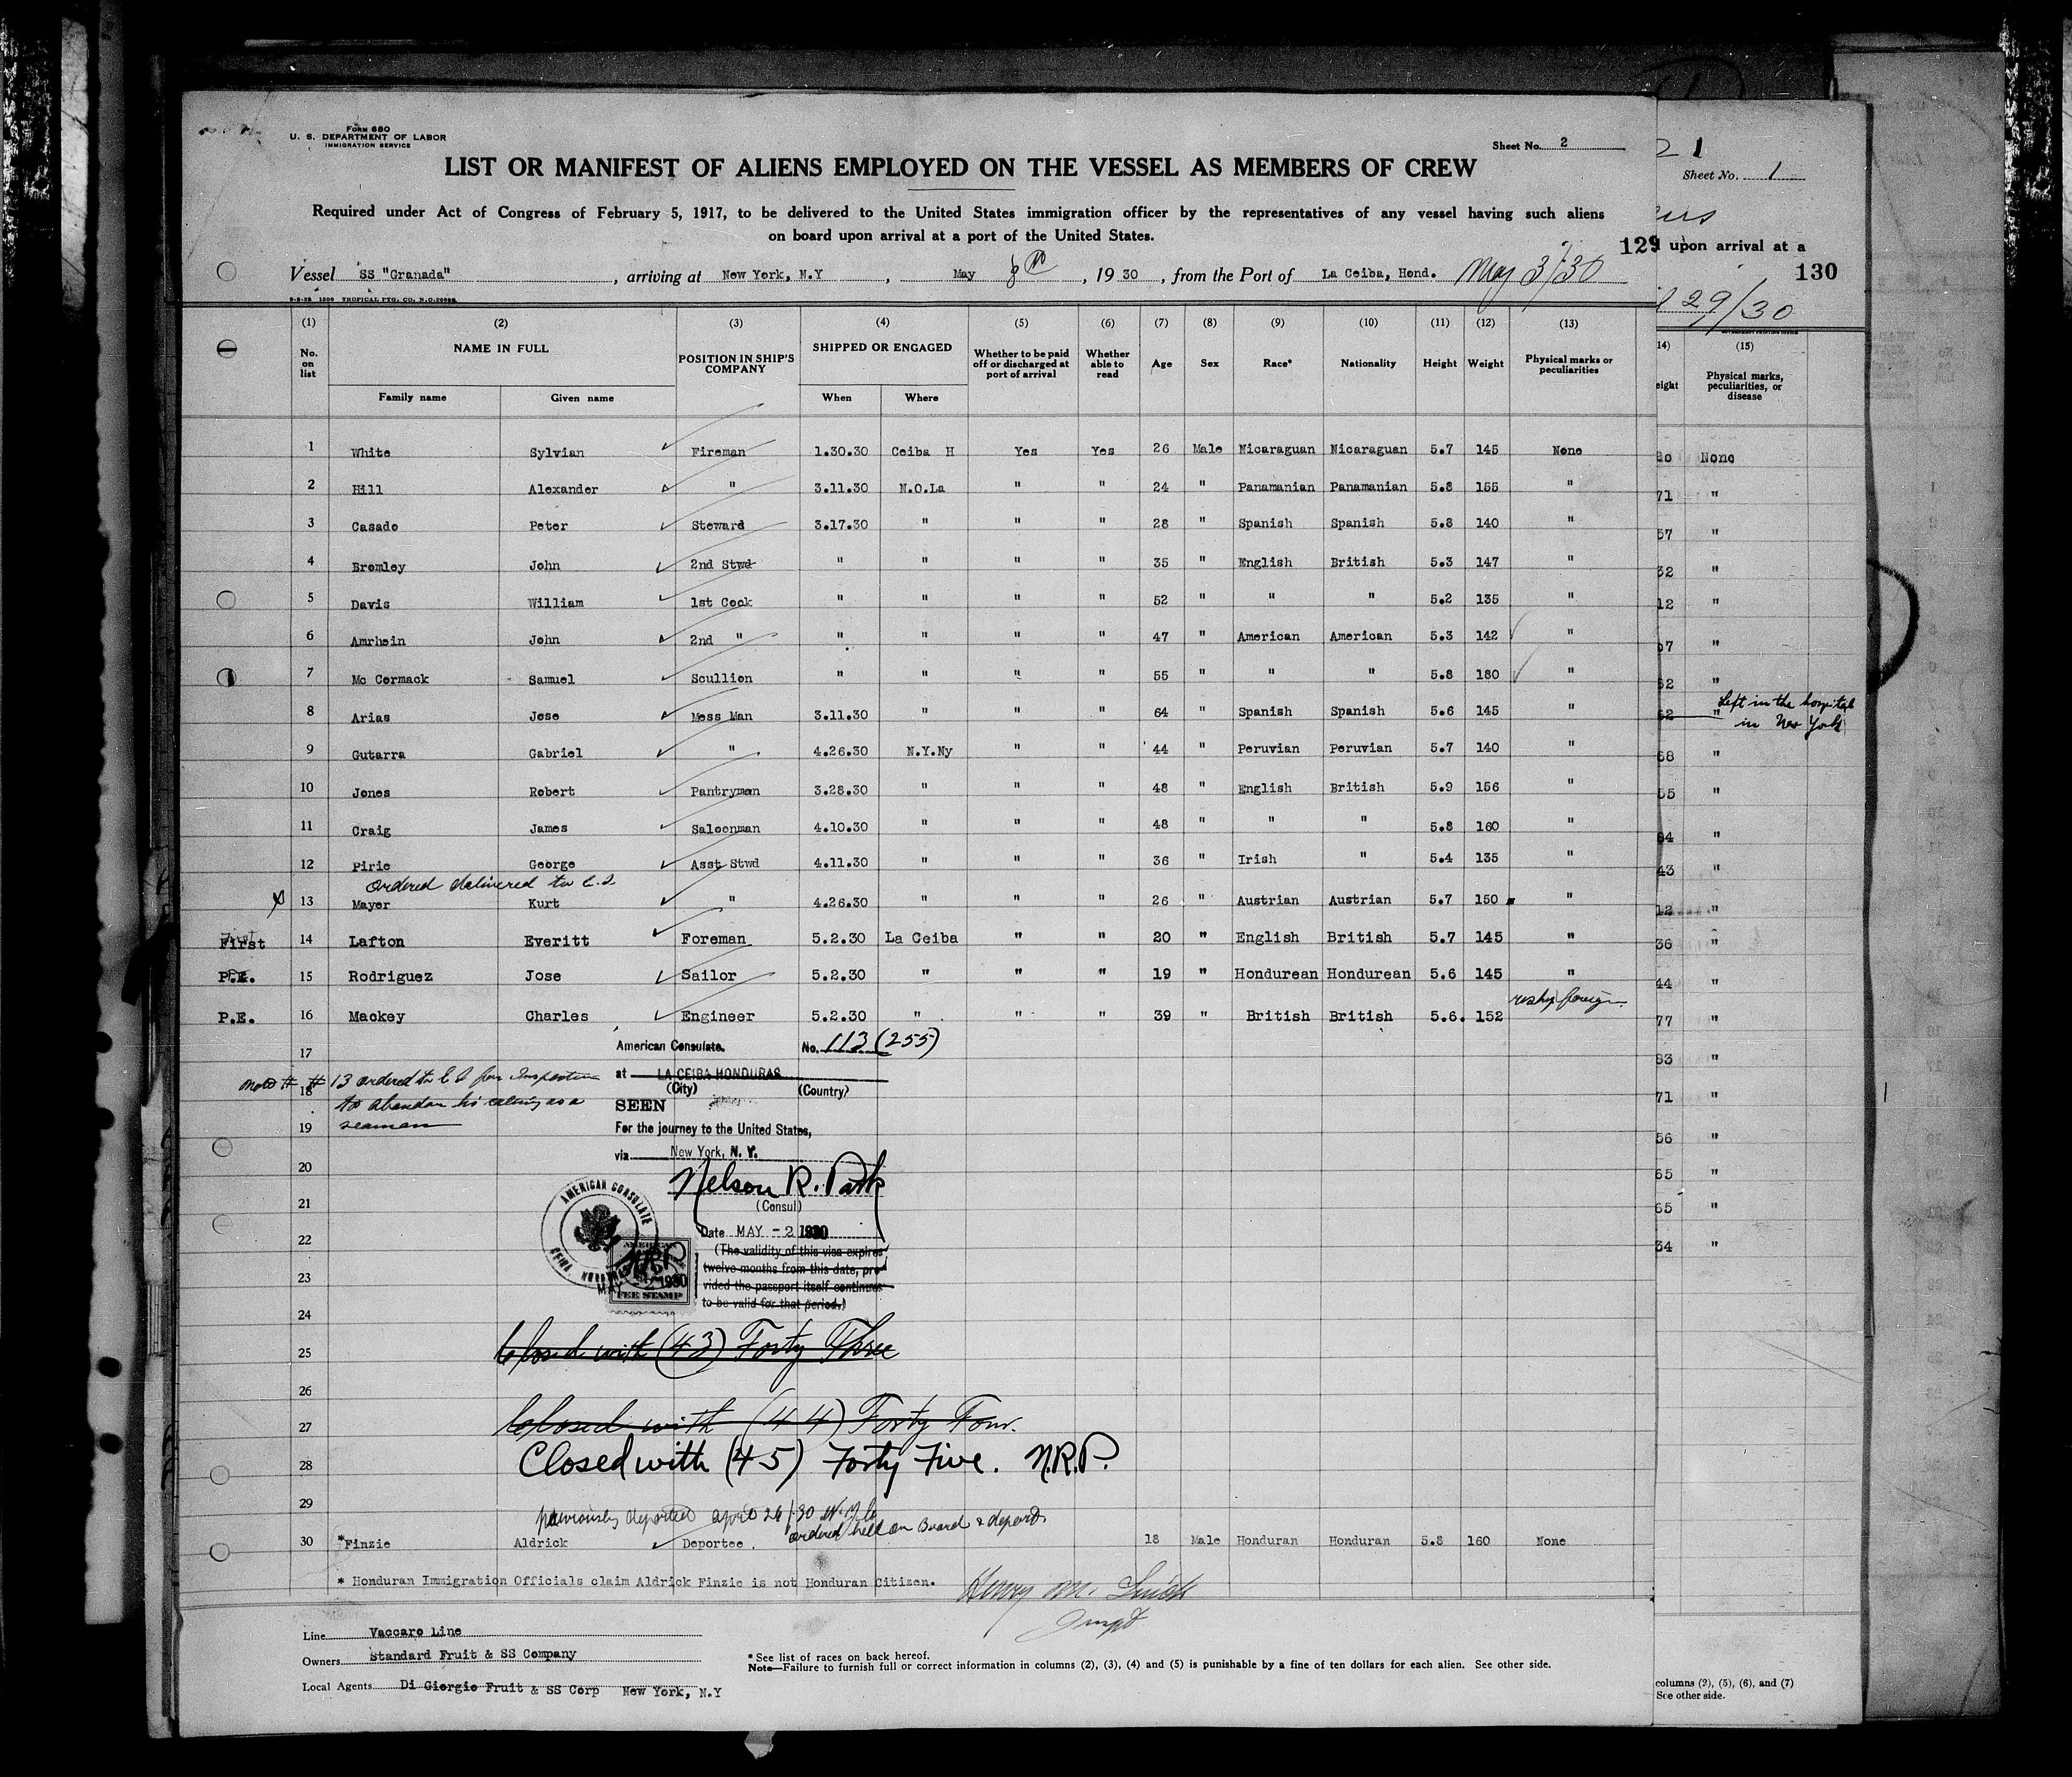 Form 680
U. S. DEPARTMENT OF LABOR
IMMIGRATION SERVICE
Sheet No. 2
LIST OR MANIFEST OF ALIENS EMPLOYED ON THE VESSEL AS MEMBERS OF CREW
Required under Act of Congress of February 5, 1917, to be delivered to the United States immigration officer by the representatives of any vessel having such aliens
on board upon arrival at a port of the United States.
129
Vessel SS "Granada" , arriving at New York, N.Y , May 8 , 19 30 , from the Port of La Ceiba, Hond. May 3/30
(1) (2) (3) (4) (5) (6) (7) (8) (9) (10) (11) (12) (13)
No. on list NAME IN FULL POSITION IN SHIP'S COMPANY SHIPPED OR ENGAGED Whether to be paid off or discharged at port of arrival Whether able to read Age Sex Race* Nationality Height Weight Physical marks or peculiarities
Family name Given name When Where
1 White Sylvian Fireman 1.30.30 Ceiba H Yes Yes 26 Male Nicaraguan Nicaraguan 5.7 145 None
2 Hill Alexander " 3.11.30 N.O.La " " 24 " Panamanian Panamanian 5.8 155 "
3 Casado Peter Steward 3.17.30 " " " 28 " Spanish Spanish 5.8 140 "
4 Bromley John 2nd Stwd " " " " 35 " English British 5.3 147 "
5 Davis William 1st Cook " " " " 52 " " " 5.2 135 "
6 Amrhein John 2nd " " " " " 47 " American American 5.3 142 "
7 Mc Cormack Samuel Scullion " " " " 55 " " " 5.8 180 "
8 Arias Jose Mess Man 3.11.30 " " " 64 " Spanish Spanish 5.6 145 "
9 Gutarra Gabriel " 4.26.30 N.Y.Ny " " 44 " Peruvian Peruvian 5.7 140 "
10 Jones Robert Pantryman 3.28.30 " " " 48 " English British 5.9 156 "
11 Craig James Saloonman 4.10.30 " " " 48 " " " 5.8 160 "
12 Pirie George Asst Stwd 4.11.30 " " " 36 " Irish " 5.4 135 "
ordered delivered to E.I
13 Mayer Kurt " 4.26.30 " " " 26 " Austrian Austrian 5.7 150 "
First 14 Lafton Everitt Foreman 5.2.30 La Ceiba " " 20 " English British 5.7 145 "
P.E. 15 Rodriguez Jose Sailor 5.2.30 " " " 19 " Hondurean Hondurean 5.6 145 "
reship foreign
P.E. 16 Mackey Charles Engineer 5.2.30 " " " 39 " British British 5.6. 152
17 American Consulate. No. 113 (255)
at LA CEIBA HONDURAS
(City) (Country)
18 Note # #13 ordered to E I for Inspection
to abandon his calling as a
19 seaman
SEEN
For the journey to the United States,
via New York, N. Y.
20
Nelson R. Park
(Consul)
21
AMERICAN CONSULATE
CEIBA HONDURAS
Date MAY - 2 1930
22
(The validity of this visa expires
twelve months from this date, pro-
vided the passport itself continues
to be valid for that period.)
23
AMERICAN
NRP
MAY - 2 1930
FEE STAMP
24
25 Closed with (43) Forty Three
26
27 Closed with (44) Forty Four.
28 Closed with (45) Forty Five. N.R.P.
29
previously deported April 26/30
ordered held on Board & deport
30 *Finzie Aldrick Deportee. 18 Male Honduran Honduran 5.8 160 None
* Honduran Immigration Officials claim Aldrick Finzie is not Honduran Citizen.
Henry M.
Inspt
Line Vaccaro Line
Owners Standard Fruit & SS Company
Local Agents Di Giorgio Fruit & SS Corp New York, N.Y
* See list of races on back hereof.
Note—Failure to furnish full or correct information in columns (2), (3), (4) and (5) is punishable by a fine of ten dollars for each alien. See other side.
21
Sheet No. 1
upon arrival at a
130
29/30
14) (15)
eight Physical marks, peculiarities, or disease
None
71 "
57 "
32 "
12 "
"
"
Left in the hospital
in New York
"
"
"
43 "
"
36 "
44 "
77 "
83 "
71 "
56 "
65 "
65 "
34 "
columns (2), (5), (6), and (7)
See other side.